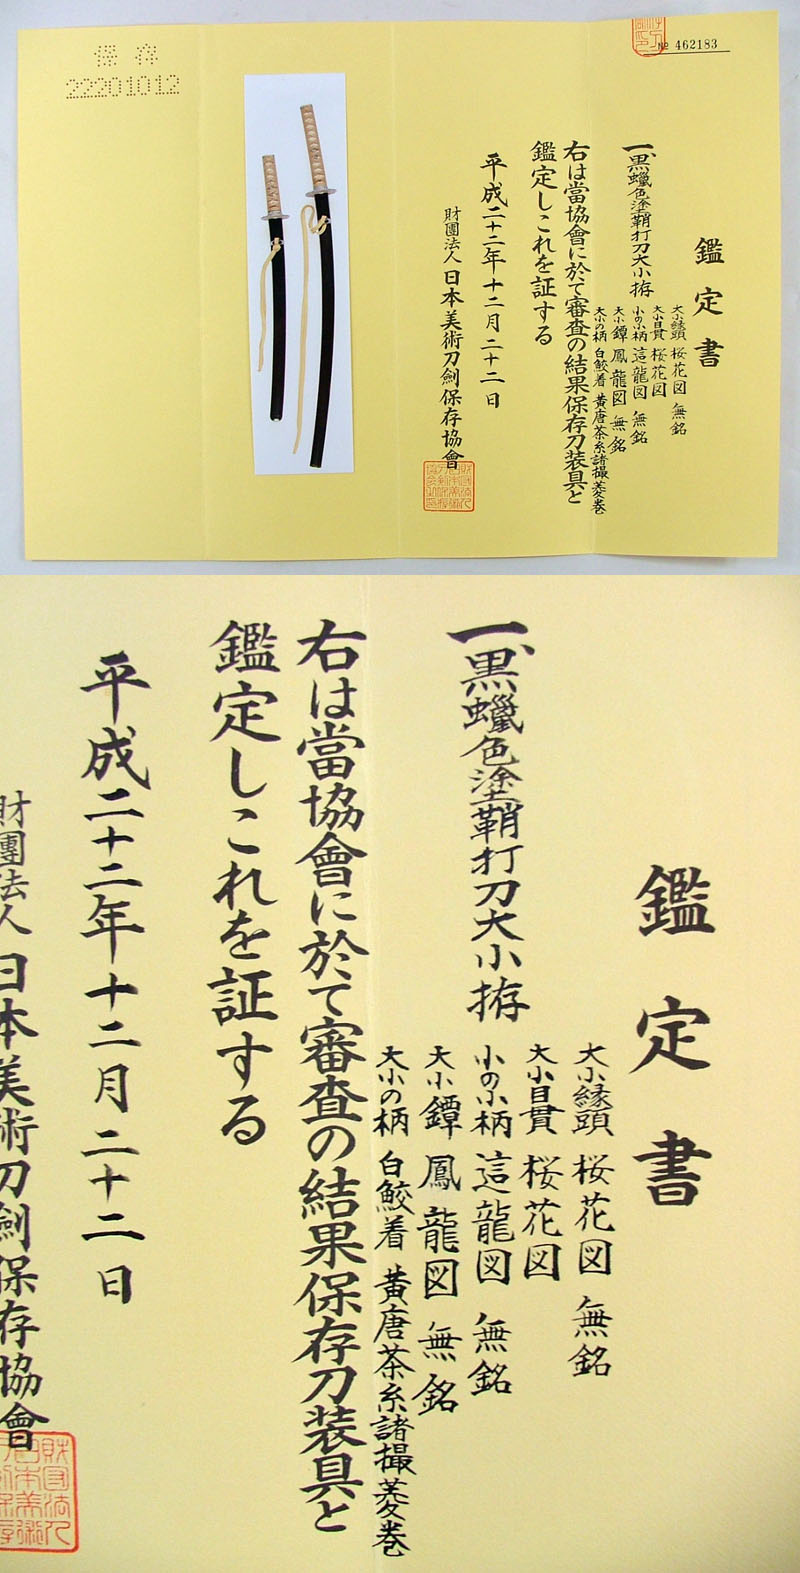 保存
22201012
№ 462183
鑑定書
一、黒蠟色塗鞘打刀大小拵
大小縁頭 桜花図 無銘
大小目貫 桜花図
小の小柄 這龍図 無銘
大小鐔 鳳龍図 無銘
大小の柄 白鮫着 黄唐茶糸諸撮菱巻
右は當協會に於て審査の結果保存刀装具と
鑑定しこれを証する
平成二十二年十二月二十二日
財團法人 日本美術刀劍保存協會
鑑定書
一、黒蠟色塗鞘打刀大小拵
大小縁頭 桜花図 無銘
大小目貫 桜花図
小の小柄 這龍図 無銘
大小鐔 鳳龍図 無銘
大小の柄 白鮫着 黄唐茶糸諸撮菱巻
右は當協會に於て審査の結果保存刀装具と
鑑定しこれを証する
平成二十二年十二月二十二日
財團法人 日本美術刀劍保存協會